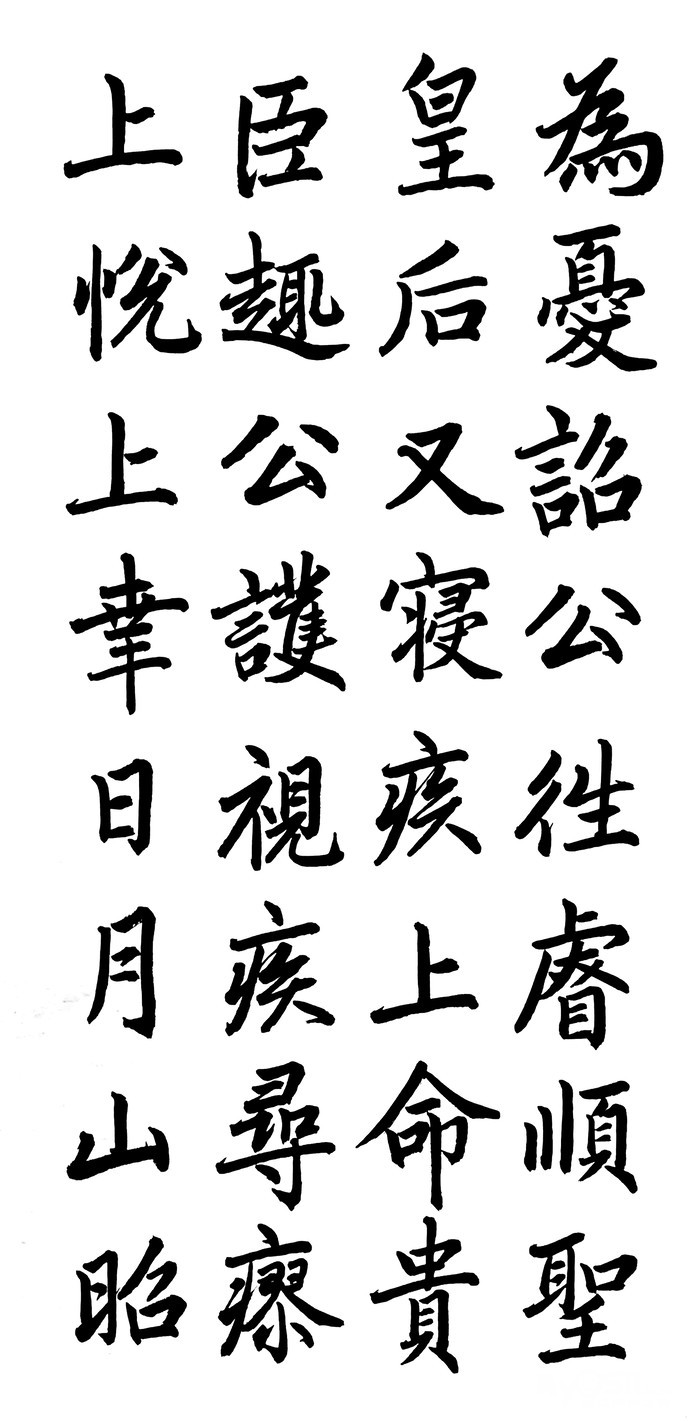 為憂詔公徃睿順聖
皇后又寝疾上命貴
臣趣公護視疾尋瘳
上悅上幸日月山昭